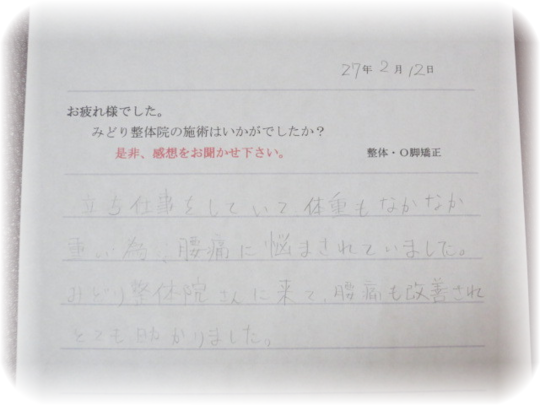 27年 2月 12日
お疲れ様でした。
みどり整体院の施術はいかがでしたか？
是非、感想をお聞かせ下さい。 整体・O脚矯正
立ち仕事をしていて体重もなかなか
重い為、腰痛に悩まされていました。
みどり整体院さんに来て、腰痛も改善され
とても助かりました。